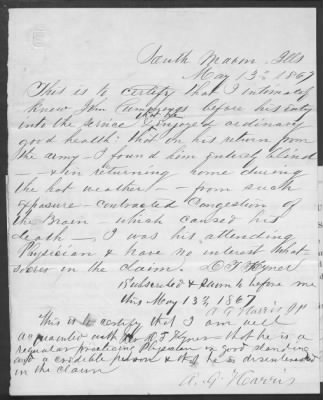 South Macon, Ills
May 13th 1867
This is to certify that I intimately
knew John before his entry
into the service & that he enjoyed ordinary
good health: that on his return from
the army I found him entirely blind
— & in returning home during
the hot weather — from such
exposure — contracted Congestion of
the Brain — which caused his
death — I was his attending
Physician & have no interest what-
soever in the claim.
Subscribed & sworn to before me
this May 13th, 1867
A G Harris JP
This is to certify that I am well
acquainted with — that he is a
regular practicing Physician in good standing
and a credible person & that he is disinterested
in the claim
A. G. Harris